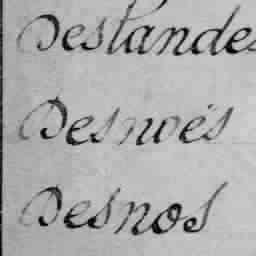 Deslandes
Desnoës
Desnos